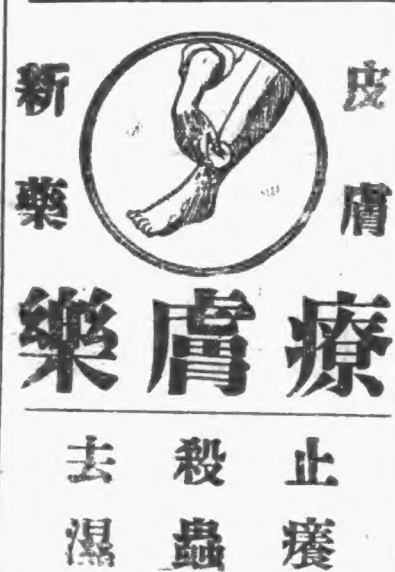 皮膚
新藥
療膚樂
止癢
殺蟲
去濕